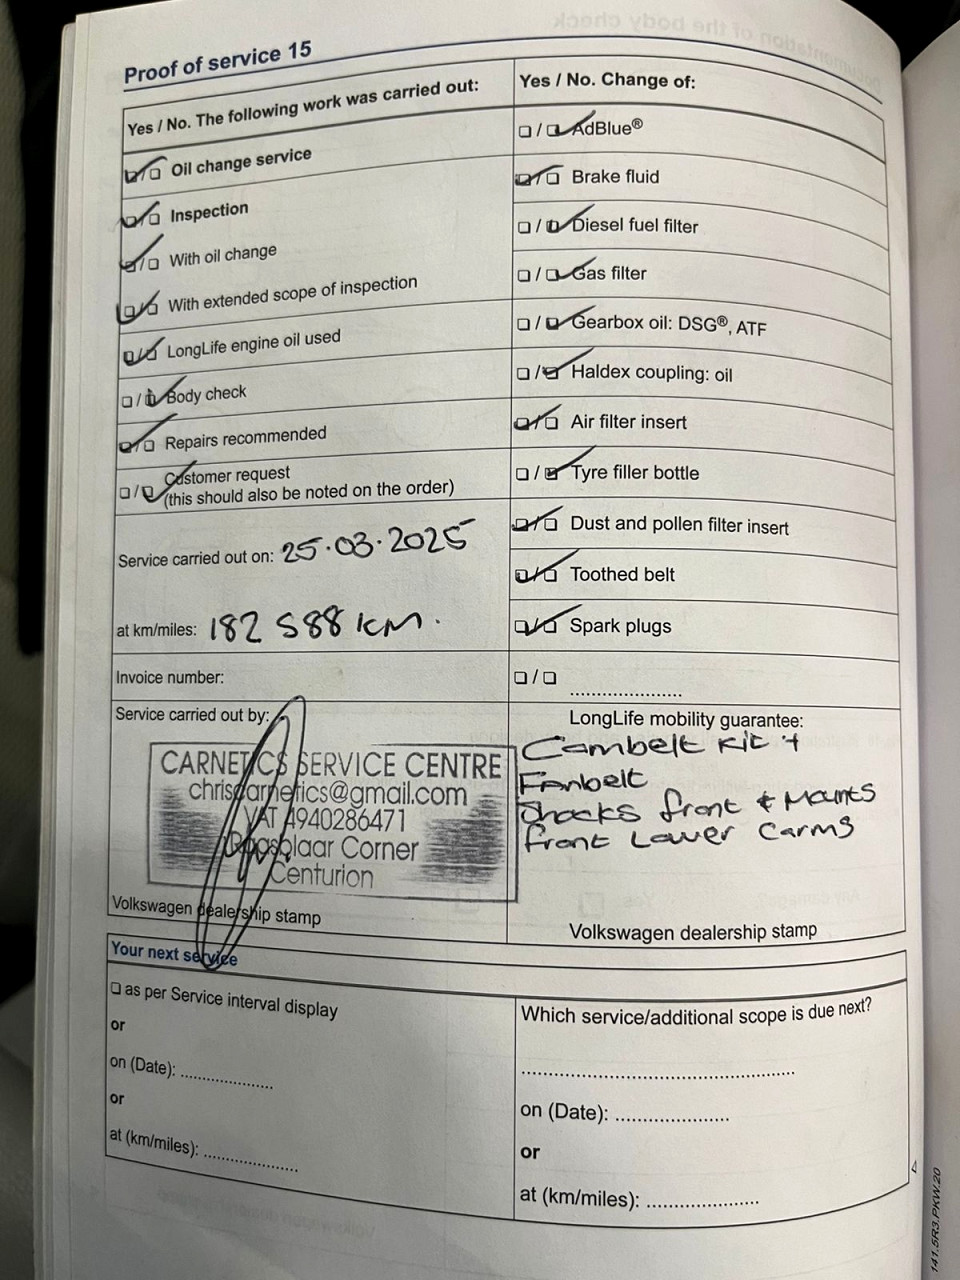 Proof of service 15
Yes / No. The following work was carried out:
Oil change service
Inspection
With oil change
With extended scope of inspection
LongLife engine oil used
Body check
Repairs recommended
Customer request
(this should also be noted on the order)
Service carried out on: 25.03.2025
at km/miles: 182 588 km.
Invoice number:
Service carried out by:
CARNETICS SERVICE CENTRE
chriscarnetics@gmail.com
VAT 4940286471
Corner
Centurion
Volkswagen dealership stamp
Yes / No. Change of:
AdBlue®
Brake fluid
Diesel fuel filter
Gas filter
Gearbox oil: DSG®, ATF
Haldex coupling: oil
Air filter insert
Tyre filler bottle
Dust and pollen filter insert
Toothed belt
Spark plugs
LongLife mobility guarantee:
Cambelt kit +
Fanbelt
Shocks front & Mounts
front Lower Carms
Volkswagen dealership stamp
Your next service
as per Service interval display
or
on (Date):
or
at (km/miles):
Which service/additional scope is due next?
on (Date):
or
at (km/miles):
141.5R3.PKW.20